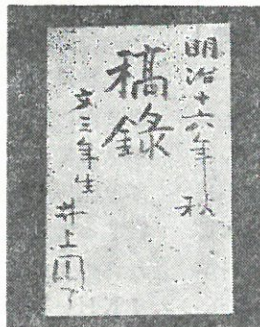 明治十六年 秋
稿錄
文三年生 井上圓了